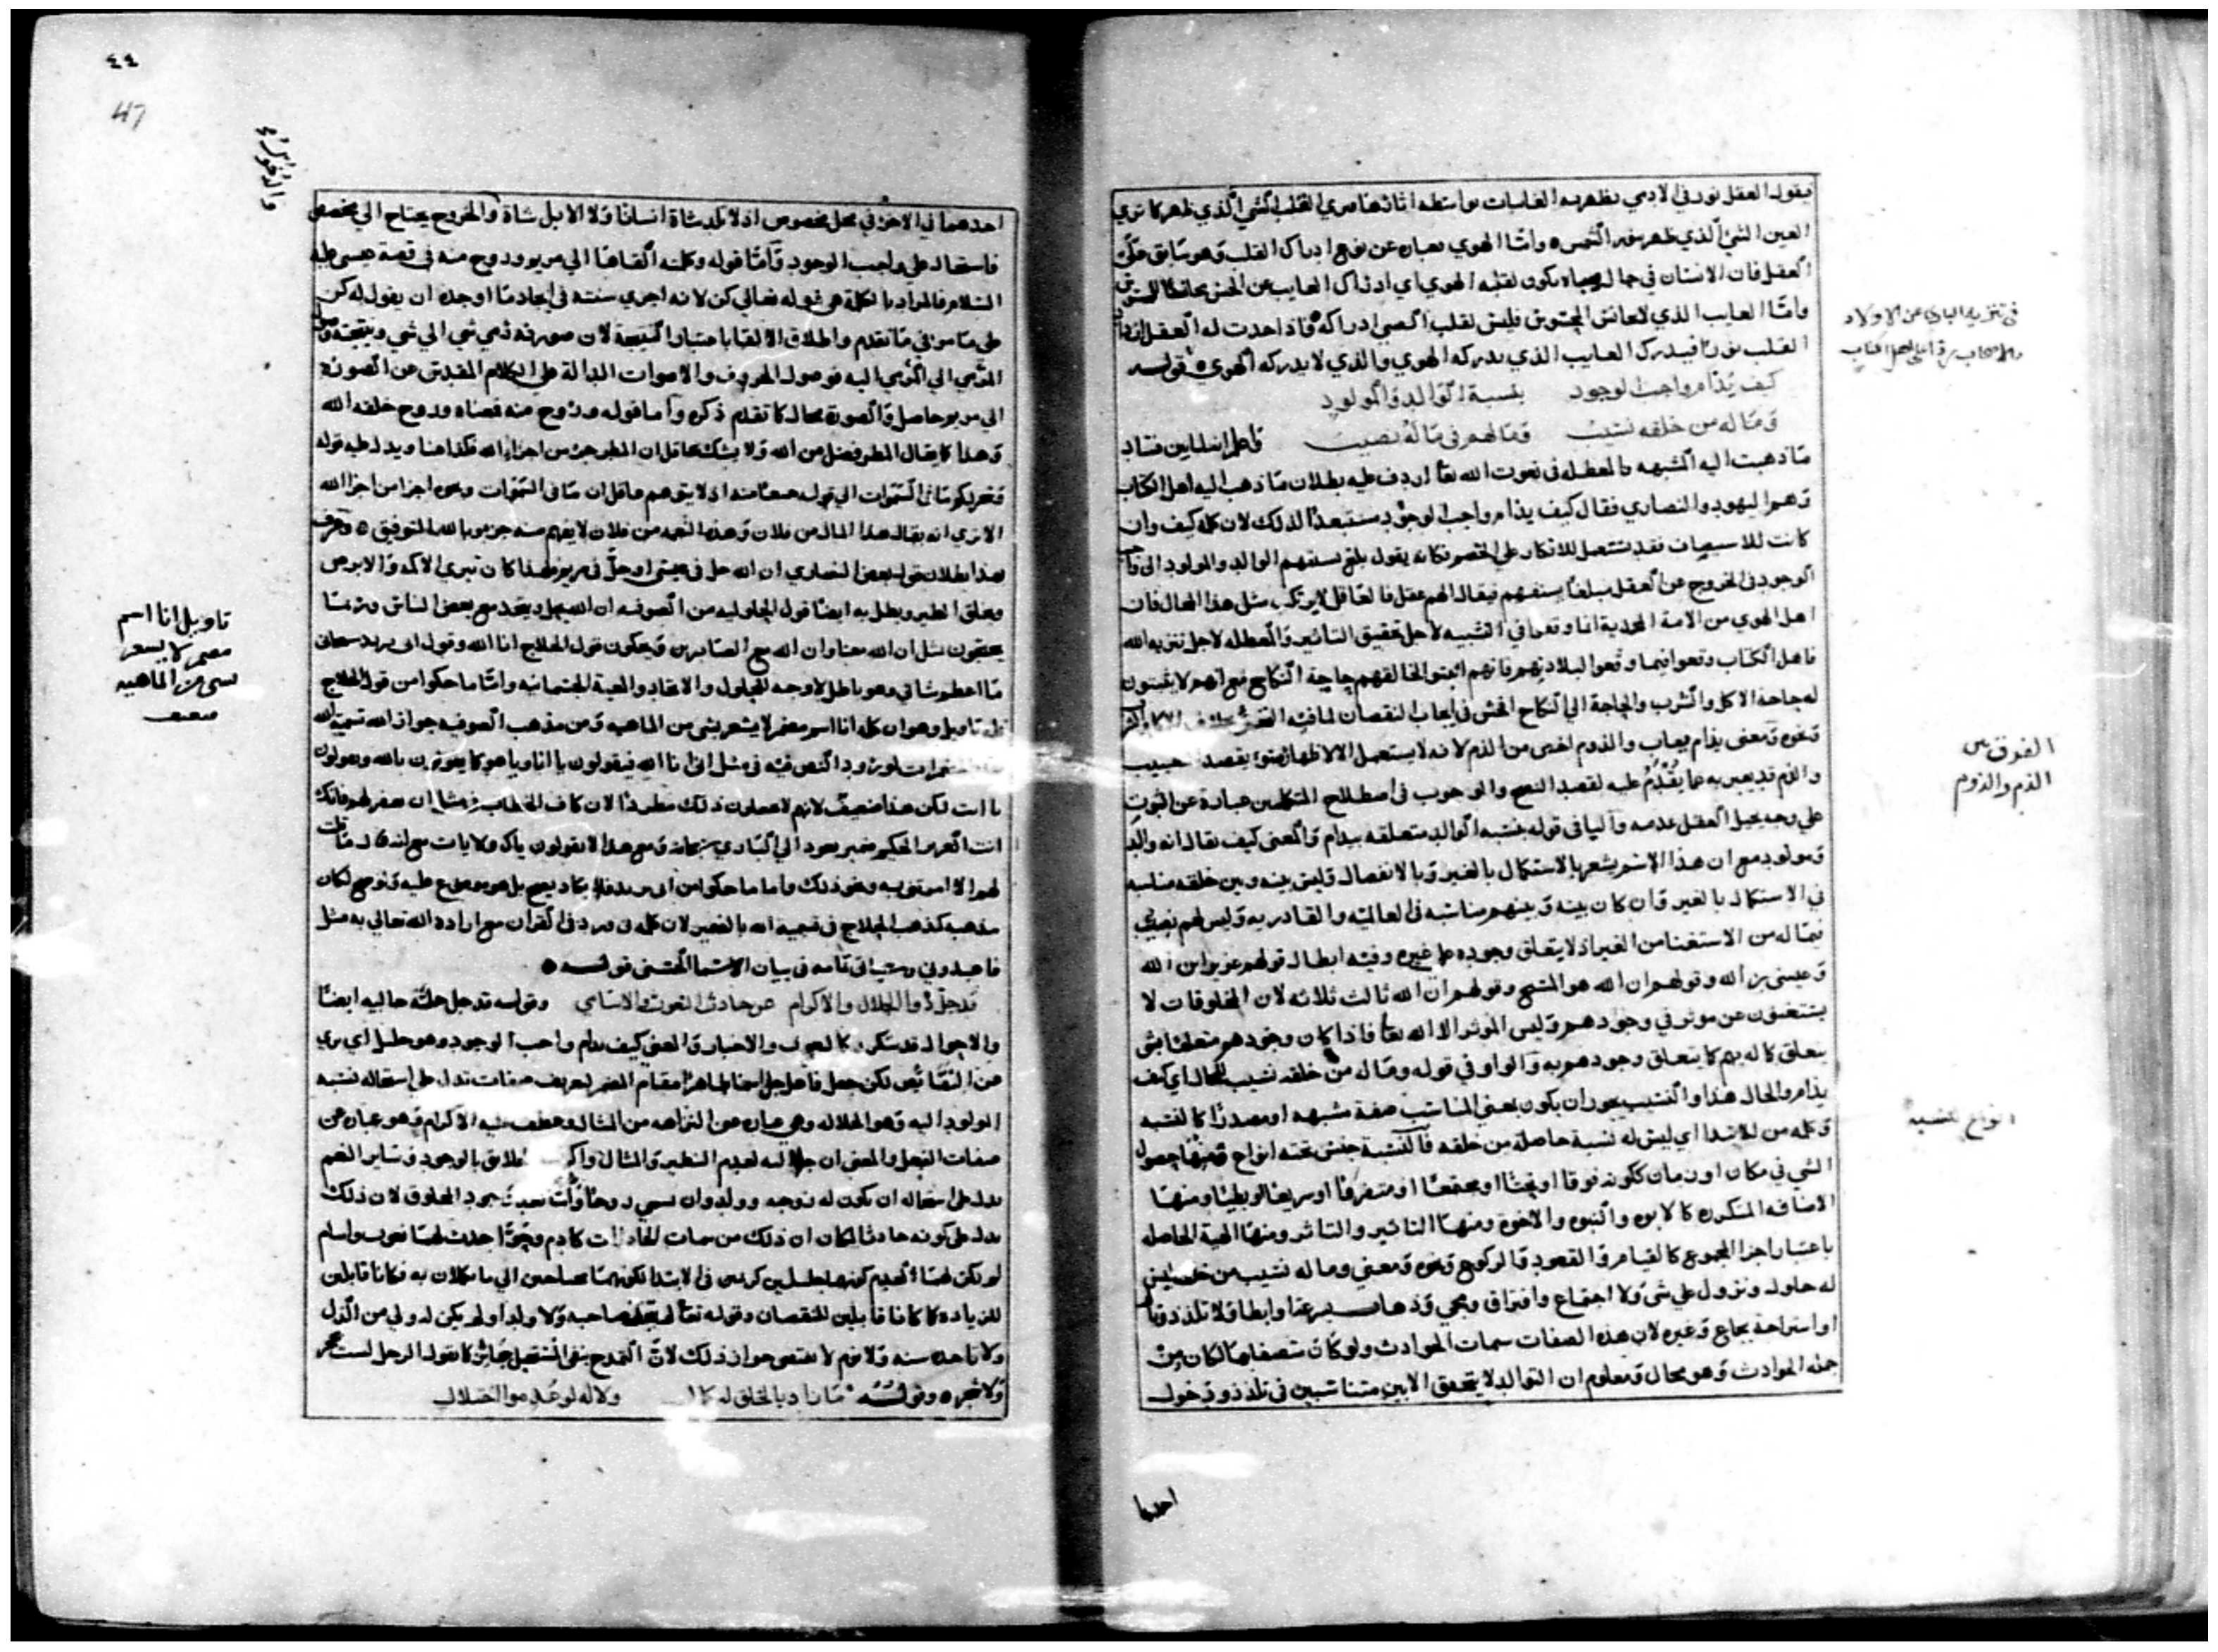 فيقول العقل نور في الادمي يظهر به الغايبات بواسطة اثارها فيري القلب الشي الذي ظهر كما تري
العين الشي الذي ظهر بنور الشمس واما الهوي فعبارة عن نوع ادراك القلب وهو سابق علي
العقل فان الانسان في حال صباه يكون لقلبه الهوي اي ادراك الغايب عن الحس
واما الغايب الذي لا يجانس المحسوس فليس لقلب الصبي ادراكه فاذا احدث له العقل
القلب نورا فيدرك الغايب الذي يدركه الهوي والذي لا يدركه الهوي قوله
كيف يذام واجب الوجود بنسبة الوالد والمولود
وما له من خلقه نسيب وما لهم في ماله نصيب فاعلم
ما ذهبت اليه المشبهة والمعطلة في نعوت الله تعا اردف عليه بطلان ما ذهب اليه اهل الكتاب
وهم اليهود والنصاري فقال كيف يذام واجب الوجود مستبعدا لذلك لان كلمة كيف وان
كانت للاستفهام فقد تستعمل للانكار علي الخصم فكانه يقول بلغ سفههم الوالد والمولود الي
الوجود في الخروج عن العقل مبلغا بسفههم فيقال الهم عقل فالعاقل لا يرتكب مثل هذا المحال فان
اهل الهوي من الامة المحمدية انما وقعوا في التشبيه لاجل تحقيق التاثير والمعطلة لاجل تنزيه الله
فاهل الكتاب وقعوا فيما وقعوا لبلادتهم فانهم اثبتوا لخالقهم حاجة النكاح مع انهم لا يثبتون
له حاجة الاكل والشرب والحاجة الي النكاح افحش في ايجاب النقصان لما فيه
ونحوه ومعني يذام يعاب والذوم اخص من الذم لانه لا يستعمل الا لاظهار بقصد
والذم قد يعبر به عما يقدم عليه لقصد النصح والوجوب في اصطلاح المتكلمين عبارة عن الثبوت
علي وجه يحيل العقل عدمه والبا في قوله بنسبة الوالد متعلقة بيذام والمعني كيف يقال انه والد
ومولود مع ان هذا الاسم يشعر بالاستكمال بالغير وبالانفصال وليس بينه وبين خلقه مناسبة
في الاستكمال بالغير وان كان بينه وبينهم مناسبة في العالمية والقادرية وليس لهم نصيب
فيما له من الاستغنا من الغير اذ لا يتعلق وجوده علي غيره وفيه ابطال قولهم عزير ابن الله
وعيسي بن الله وقولهم ان الله هو المسيح وقولهم ان الله ثالث ثلاثة لان المخلوقات لا
يستغنون عن موثر في وجودهم وليس الموثر الا الله تعا فاذا كان وجودهم متعلقا بشي
يتعلق كماله بهم كما يتعلق وجودهم به والواو في قوله وما له من خلقه نسيب للحال اي كيف
يذام والحال هذا والنسيب يجوز ان يكون بمعني المناسب صفة مشبهة او مصدرا كالنسبة
وكلمة من للابتدا اي ليس له نسبة حاصلة من خلقه فالنسبة جنس تحته انواع فمنها حصول
الشي في مكان او زمان ككونه فوقا او تحتا او مجتمعا او متفرقا او سريعا او بطيئا ومنها
الاضافة المتكررة كالابوة والبنوة والاخوة ومنها التاثير والتاثر ومنها الهيئة الحاصلة
باعتبار اجزا المجموع كالقيام والقعود والركوع ونحوه ومعني وما له نسيب من خلقه ليس
له حلول ونزول علي شي ولا اجتماع وافتراق ومجي وذهاب بسرعة وابطا ولا تلذذ
او استراحة بجماع وغيره لان هذه الصفات سمات الحوادث ولو كان متصفا بها لكان من
جملة الحوادث وهو محال ومعلوم ان التوالد لا يتحقق الا بين متناسبين في تلذذ ودخول
احدهما
في تنزيه الباري عن الاولاد
الفرق بين
الذم والذوم
انواع النسبة
٤٤
47
احدهما في الاخر في محل مخصوص اذ لا تلد شاة انسانا ولا الابل شاة والخروج يحتاج الي مخصص
فاستحال علي واجب الوجود واما قوله وكلمته القاها الي مريم وروح منه في قصة عيسي عليه
السلام فالمراد بالكلمة هي قوله تعالي كن لانه اجري سنته في ايجاد ما اوجده ان يقول له كن
علي ما مر في ما تقدم واطلاق الالقا باعتبار النتيجة لان صورته رمي شي الي شي ونتيجته
المرمي الي المرمي اليه فوصول الحروف والاصوات الدالة علي الكلام المقدس عن الصورة
الي مريم حاصل والصورة محال كما تقدم ذكره واما قوله وروح منه فمعناه وروح خلقه الله
وهذا كما يقال المطر فضل من الله ولا يشك عاقل ان المطر جزء من اجزاء الله فكذا هنا ويدل عليه قوله
وسخر لكم ما في السموات الي قوله جميعا منه اذ لا يتوهم عاقل ان ما في السموات ونحوه اجزا من اجزا الله
الا تري انه يقال هذا المال من فلان وهذه النعمة من فلان لا يفهم منه جزوه وبالله التوفيق
بهذا بطلان قول بعض النصاري ان الله حل في عيسي او حل في مريم ولهذا كان تبري الاكمه والابرص
وخلق الطير وبطل به ايضا قول الحلولية من الصوفية ان الله يحل ويتحد مع بعض الناس وربما
يحتجون بمثل ان الله معنا وان الله مع الصابرين ويحكون قول الحلاج انا الله وقول ابي يزيد سبحاني
ما اعظم شاني وهو باطل لا وجه للحلول والاتحاد والمعية الجثمانية واما ما حكوا من قول الحلاج
فله تاويل وهو ان كلمة انا اسم مضمر لا يشعر بشي من الماهية ومن مذهب الصوفية جواز الله تسمية
المضمرات لورود النص فيه في مثل اني انا الله فيقولون يا انا ويا هو كما يقولون يا الله ويقولون
يا انت لكن هذا ضعيف لانهم لا يجعلون ذلك مطردا لان كاف الخطاب في مثل ان تغفر لهم فانك
انت العزيز الحكيم ضمير يعود الي الباري سبحانه ومع هذا لا يقولون ياك ولا يات مع انه قال ما قلت
لهم الا ما امرتني به ونحو ذلك واما ما حكوا من ابي يزيد فلا يكاد يصح بل هو موضوع عليه ولو صح لكان
مذهبه كمذهب الحلاج في تسمية الله بالضمير لان كلمة ني ورد في القران مع ارادة الله تعالي به مثل
فاعبدوني وسياتي تمامه في بيان الاسما الحسني قوله
قد جل ذو الجلال والاكرام عن حادث النعوت والاسامي وقوله قد جل جملة حالية ايضا
والاحوال قد تتكرر كالنعوت والاخبار والمعني كيف يذام واجب الوجود وهو جليل اي بري
عن النقائص لكن جعل فاعل جل اسما ظاهرا مقام المضمر لتعريف صفات تدل علي استحالة نسبة
المولود اليه وهو الجلالة وهي عبارة عن النزاهة من المثال وعطف عليه الاكرام وهو عبارة عن
صفات الفعل والمعني ان جلاله لعدم النظير والمثال الخلايق بالوجود وساير النعم
يدل علي استحالة ان يكون له زوجة وولد وان سمي روحا الخلوق لان ذلك
يدل علي كونه حادثا لمكان ان ذلك من سمات الحادثات كادم وحوا حدث لهما نعوت واسام
لم تكن لهما في القدم كونهما في الابتدا لكونهما محتاجين الي ما يكملان به فكانا قابلين
للزيادة كما كانا قابلين للنقصان وقوله تعا لم يتخذ صاحبة ولا ولدا ولم يكن له ولي من الذل
ولا تاخذه سنة ولا نوم لا يقتضي جواز ذلك لان التمدح بنفي المستحيل جائز كما يقول الرجل لست بحجر
ولا شجرة وقوله ما زاد بالخلق له كمال ولا له لو عدموا اختلال
تاويل انا اسم
مضمر لا يشعر
بشي من الماهية
ضعيف